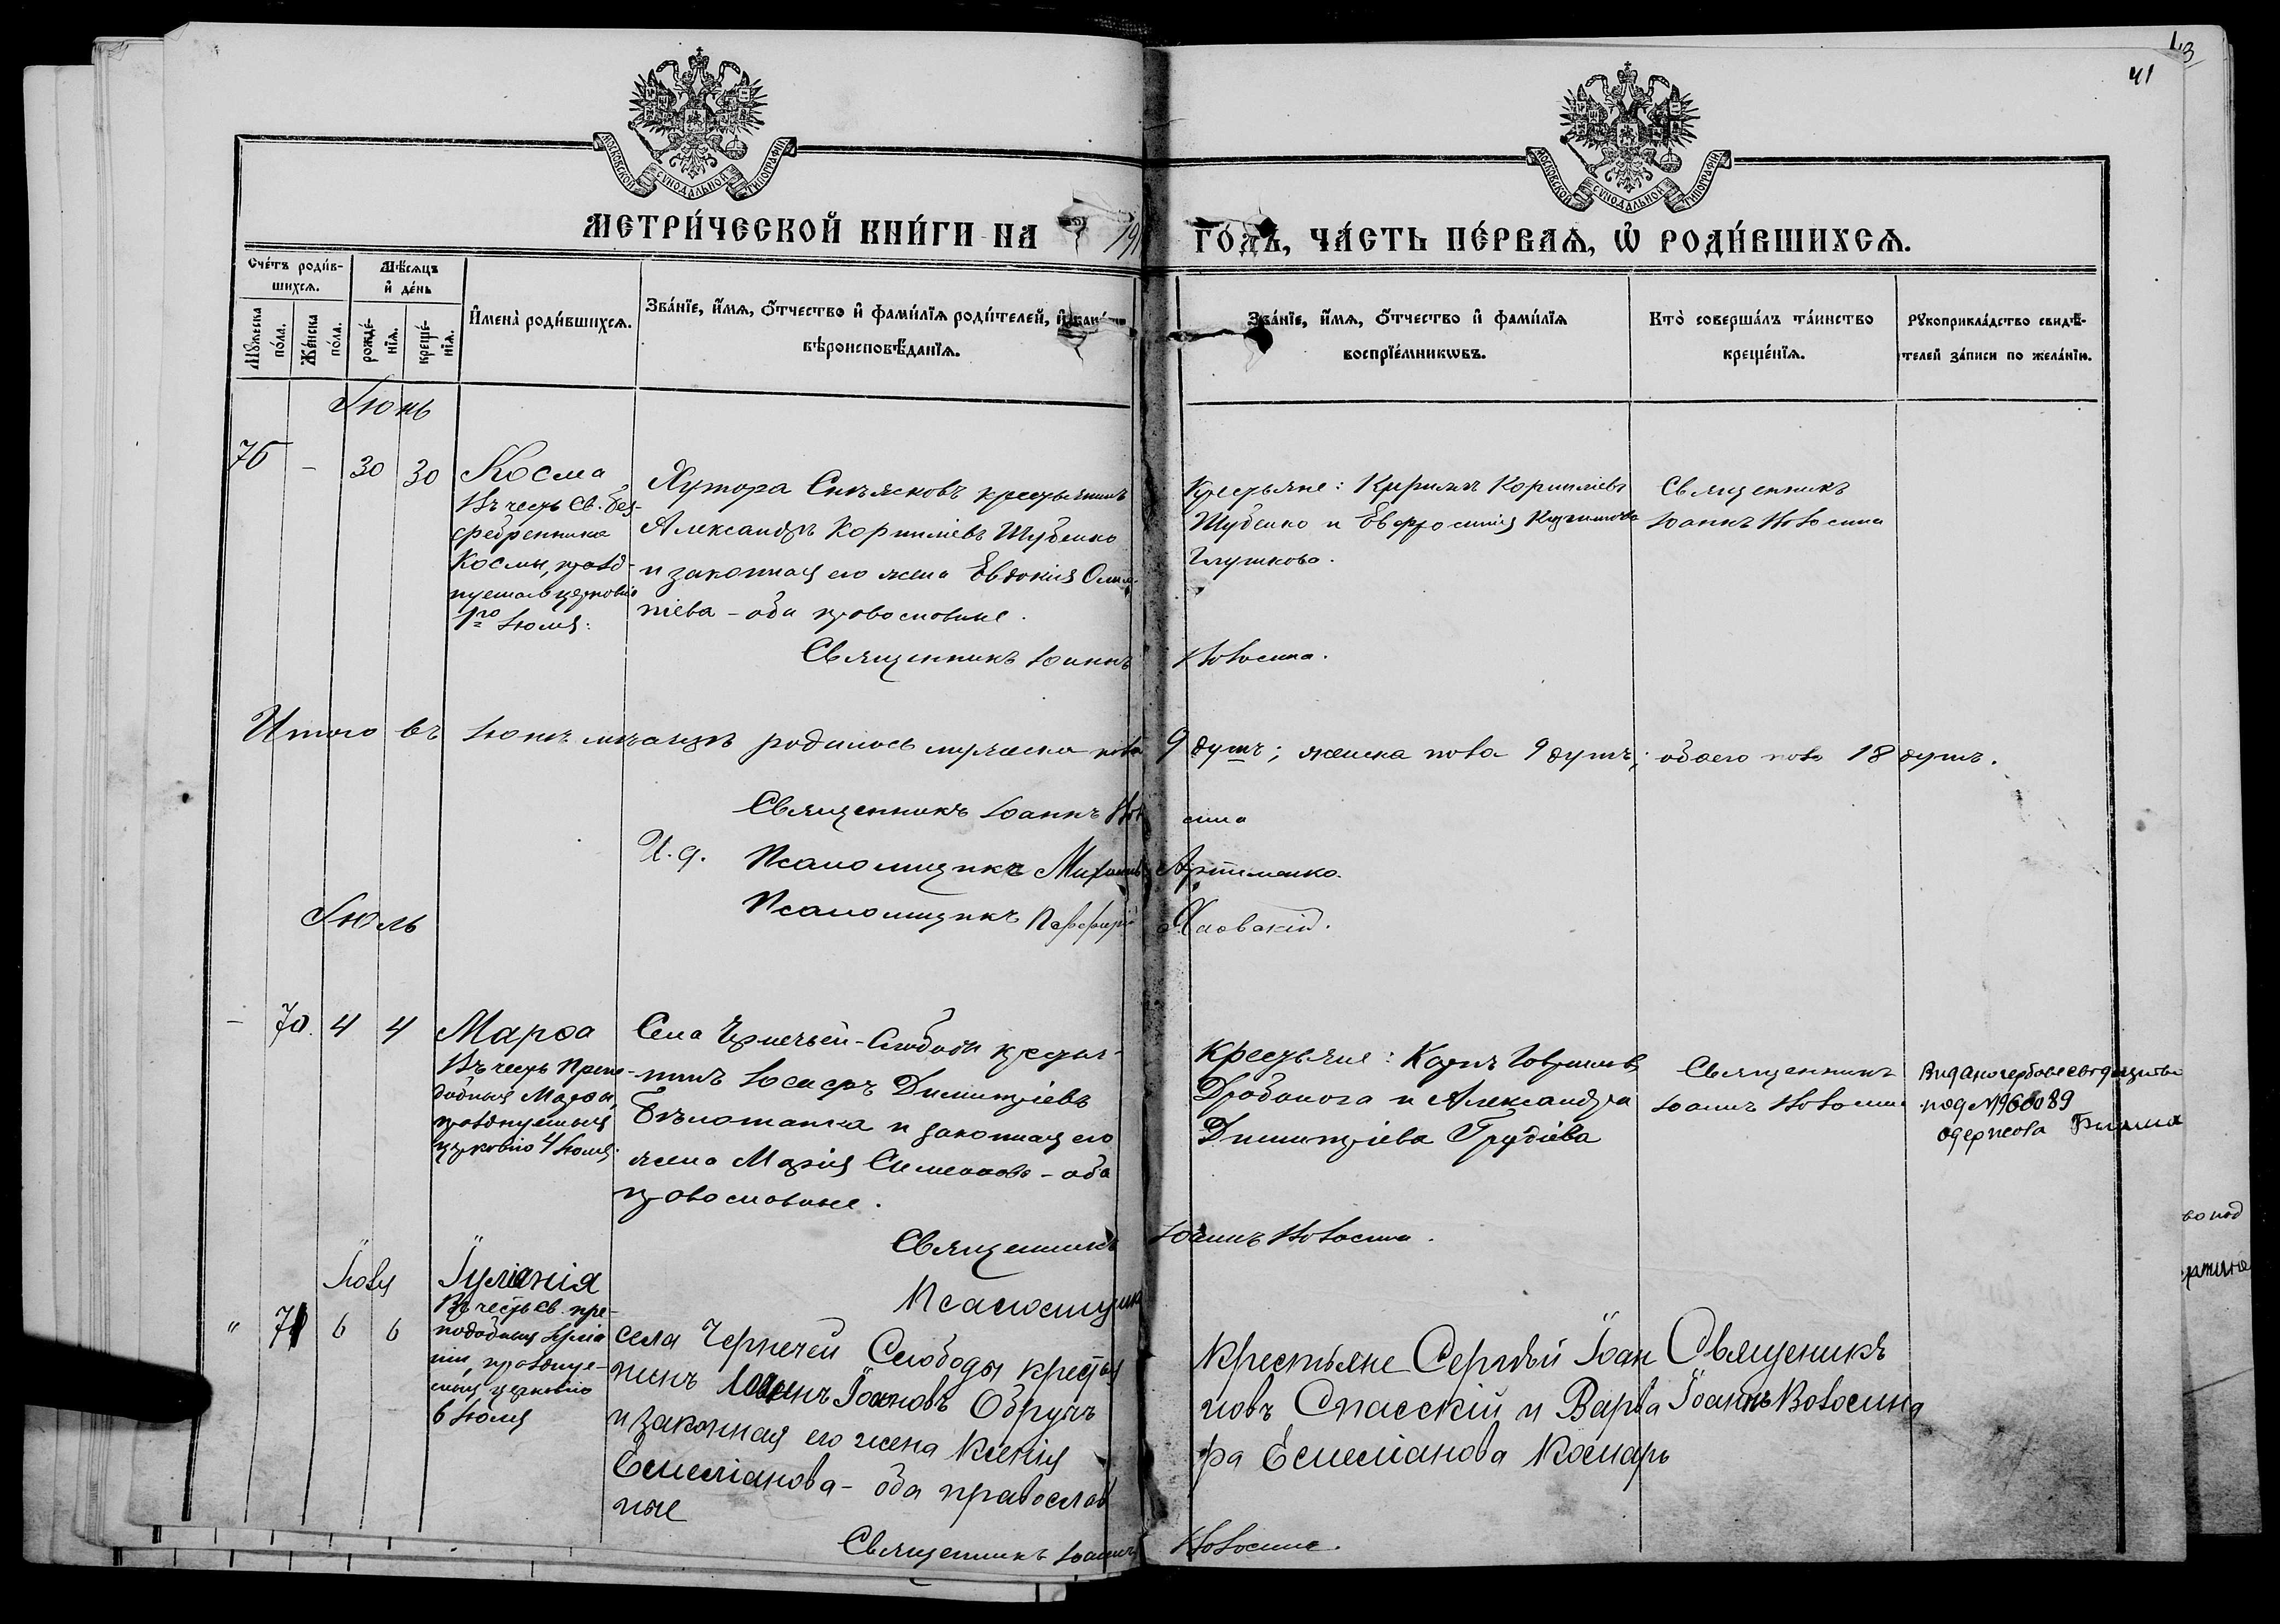 43
41
МОСКОВСКОЙ СѴНОДАЛЬНОЙ ТИПОГРАФІИ
МОСКОВСКОЙ СѴНОДАЛЬНОЙ ТИПОГРАФІИ
МЕТРИ́ЧЕСКОЙ КНИ́ГИ НА 191 ГО́ДЪ, ЧА́СТЬ ПЕ́РВАѦ, Ѡ҆ РОДИ́ВШИХСѦ.
Сче́тъ роди́в-
шихсѧ.
Мꙋ́жеска по́ла.
Же́нска по́ла.
Мѣ́сѧцъ
и҆ де́нь
рожде́-нїѧ.
креще́-нїѧ.
И҆мена̀ роди́вшихсѧ.
Зва́нїе, и҆́мѧ, ѻ҆́тчество и҆ фами́лїѧ роди́телей, и҆
вѣроисповѣ́данїѧ.
Зва́нїе, и҆́мѧ, ѻ҆́тчество и҆ фами́лїѧ
воспрїе́мникѡвъ.
Кто̀ соверша́лъ та́инство
креще́нїѧ.
Рꙋкоприкла́дство свидѣ́-
телей за́писи по жела́нїю.
Іюнь
76 - 30 30
Косма
Въ честь св. без-
сребренника
Космы, празд-
нуемаго церковію
1го Іюля.
Хутора крестьянинъ
Александръ Корниліевъ Шубенко
и законная его жена Евдокія
піева - оба православные.
Крестьяне: Кириллъ Корниліевъ
Шубенко и Евфросинія
Глушкова.
Священникъ
Іоаннъ Волосина
Священникъ Іоаннъ Волосина.
Итого въ Іюнѣ мѣсяцѣ родилось мужеска пола 9 душъ; женска пола 9 душъ; обоего пола 18 душъ.
Священникъ Іоаннъ Волосина
И. д. Псаломщика Михаилъ Артименко.
Псаломщикъ Порфирій
Іюль
- 70. 4 4
Марѳа
Въ честь Препо-
добныя Марѳы,
празднуемыя
церковію 4 Іюля.
Села Чернечьей-Слободы крестья-
нинъ Іосифъ Димитріевъ
и законная его
жена Марія Симеонова - оба
православные.
Крестьяне: Карпъ
Дробонога и Александра
Димитріева Грудіева
Священникъ
Іоаннъ Волосина
Видано гербове свідоцтво
под №960089
одержала
Священникъ Іоаннъ Волосина.
Псаломщик
Іюля
" 71 6 6
Іуліанія
Въ честь св. пре-
подобныя Іуліа-
ніи, празднуе-
мыя церковію
6 Іюля
села Чернечей Слободы крестья
нинъ Іоаннъ Іоанновъ Обручъ
и законная его жена Ксенія
Емеліанова - оба православ
ные
крестьяне Сергѣй Іоан
новъ Спасскій и Варва
ра Емеліанова Коснарь
Священикъ
Іоаннъ Волосина
Священникъ Іоаннъ Волосина.